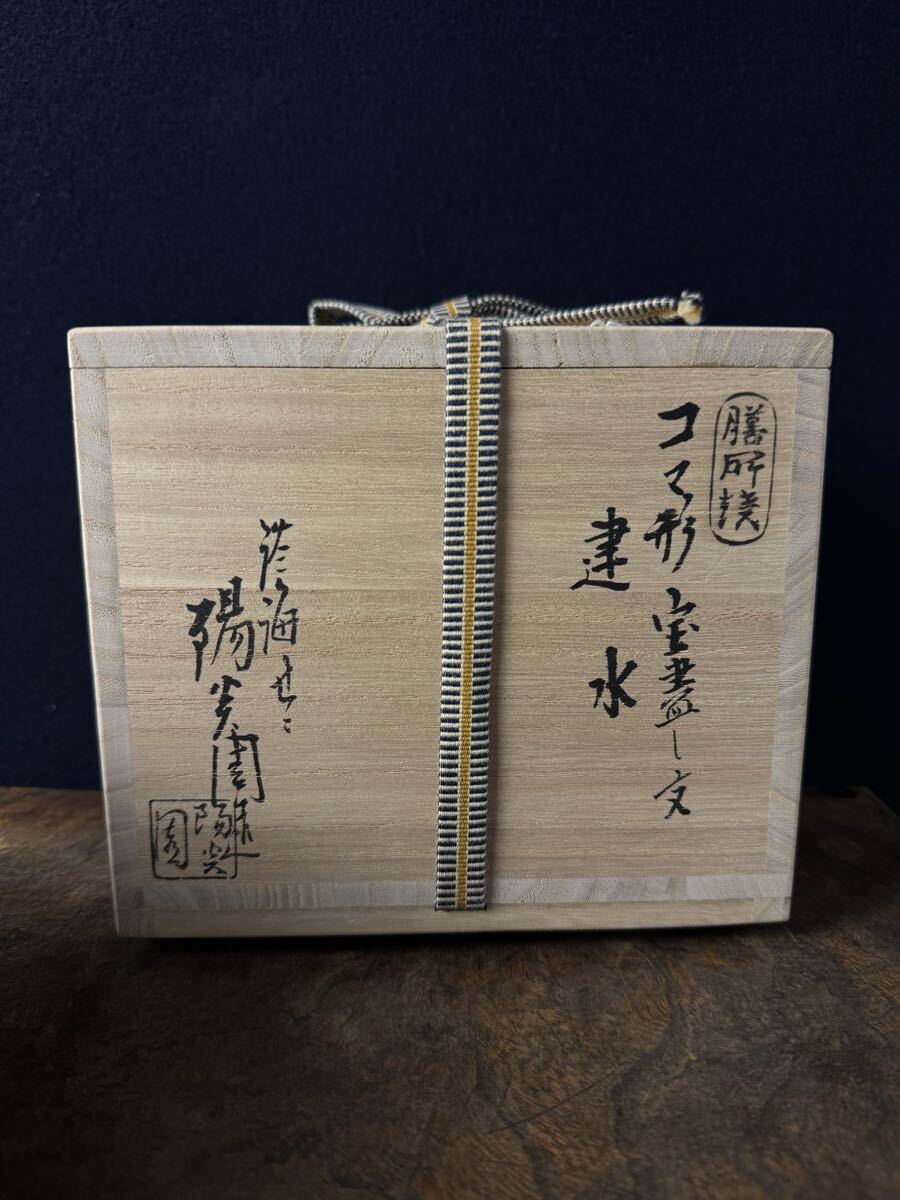 膳所焼
コマ形宝尽し文
建水
淡海ぜゞ
陽炎園
陽炎園